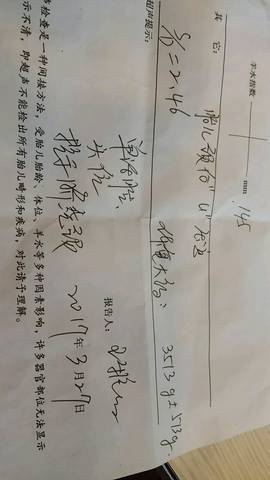 羊水指数: mm 145
其 它: 胎儿颈位"U"压迹
S/D=2.46 估重大约: 3513g±513g.
超声提示:
单活胎、
头位
提示脐绕颈
报告人:
2017年3月27日
检查是一种间接方法,受胎儿胎龄、体位、羊水等多种因素影响,许多器官部位无法显示
示不清,即超声不能检出所有胎儿畸形和疾病,对此请予理解。